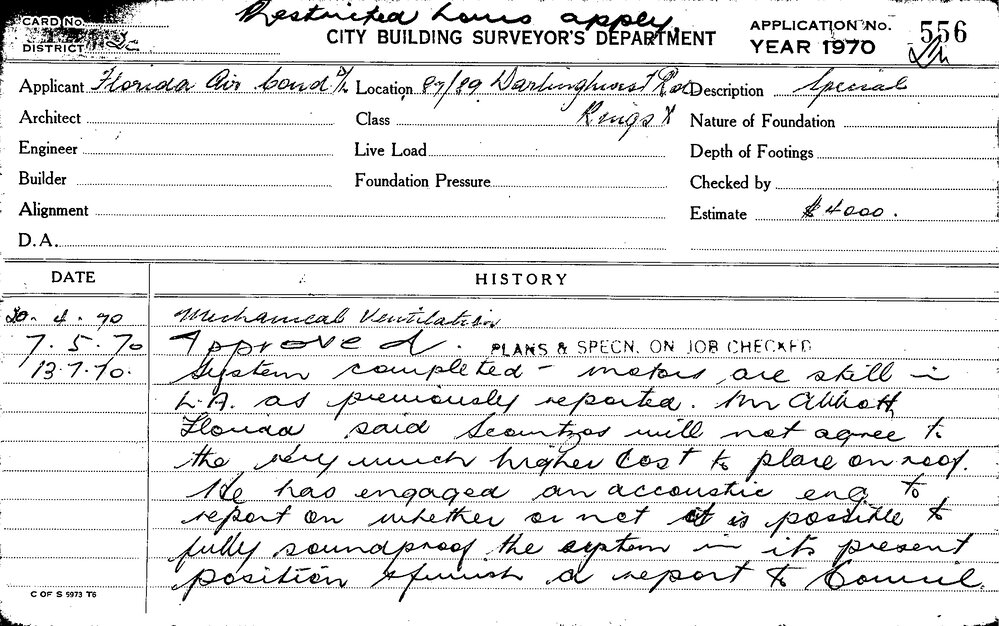 Restricted hours apply
CARD No.
CITY BUILDING SURVEYOR'S DEPARTMENT
APPLICATION No. 556
DISTRICT
YEAR 1970
Applicant Florida Air Cond. Location 87/89 Darlinghurst Rd Description Special
Architect Class Kings X Nature of Foundation
Engineer Live Load Depth of Footings
Builder Foundation Pressure Checked by
Alignment Estimate $4000.
D.A.
DATE HISTORY
20.4.70 Mechanical Ventilation
7.5.70 Approved. PLANS & SPECN. ON JOB CHECKED
13.7.70. System completed - motors are still in
L.A. as previously reported. Mr Abbott
Florida said will not agree to
the very much higher cost to place on roof.
He has engaged an accoustic eng. to
report on whether or not it is possible to
fully soundproof the system in its present
position & furnish a report to Council.
C OF S 5973 T6